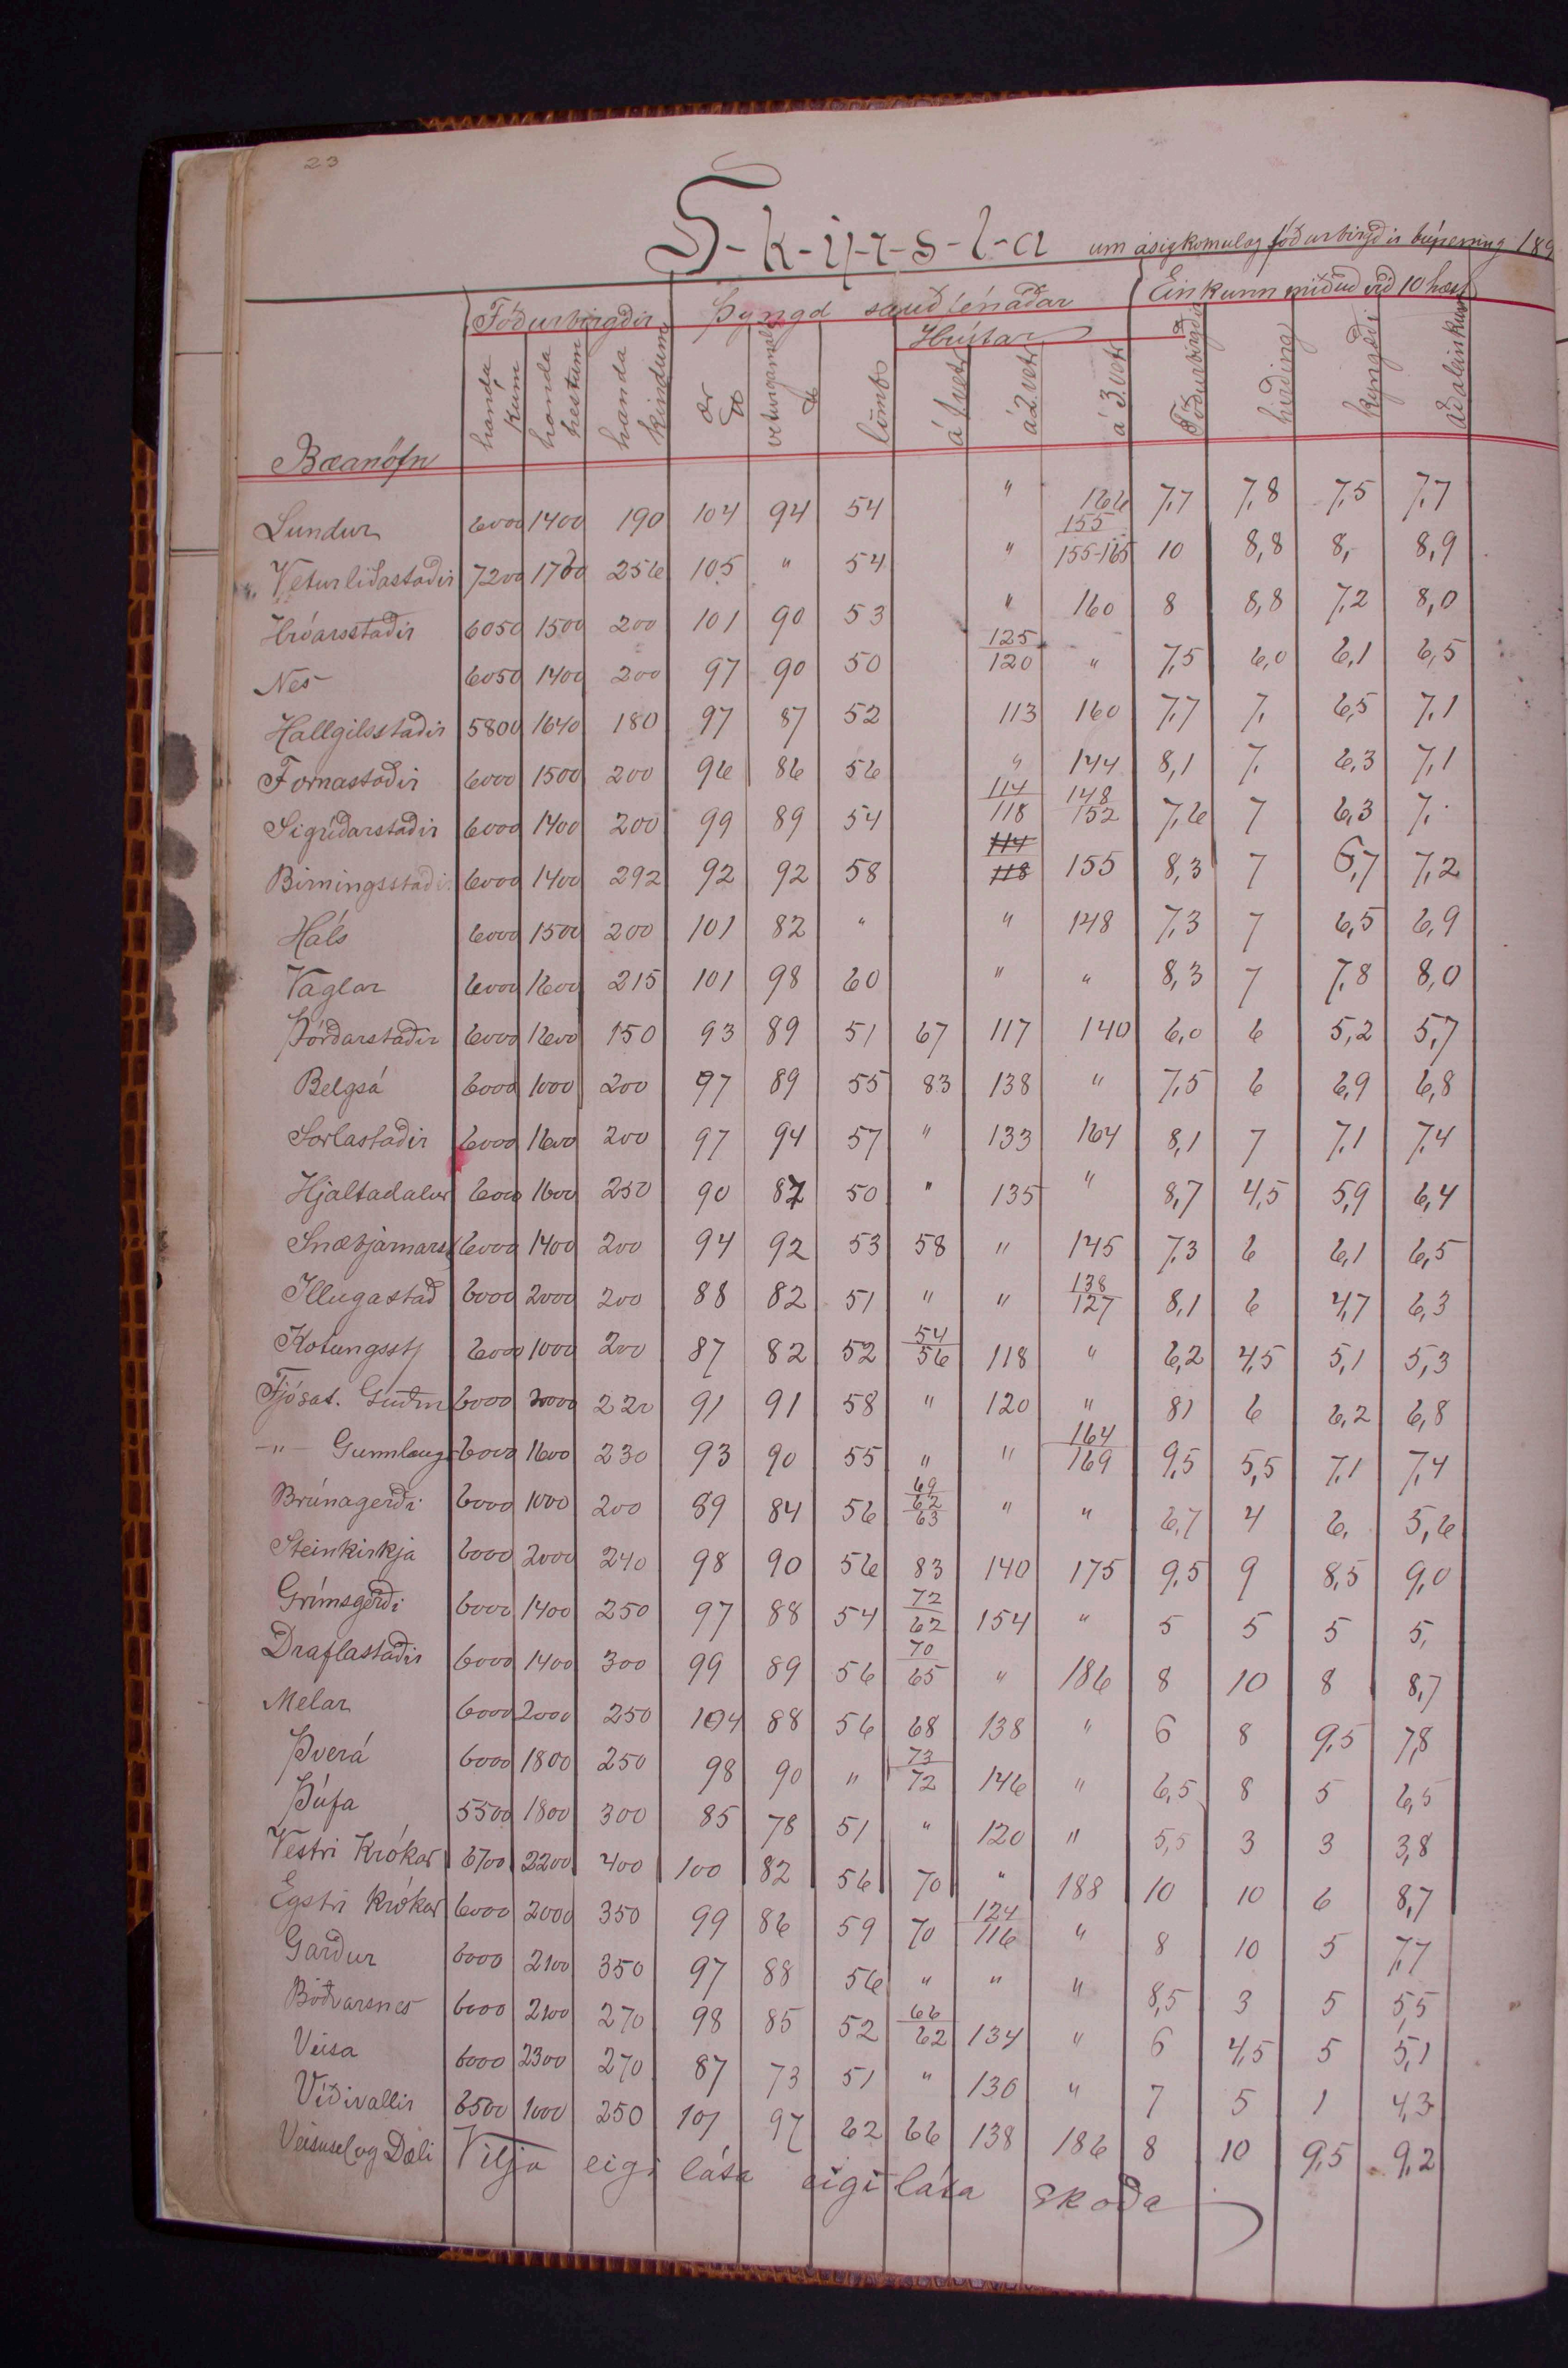 23
S-k-ý-r-s-l-a um ásigkomulag fóðurbirgðir búpening 189
Fóðurbirgðir Þyngd sauðfénaðar Einkunn miðuð við 10 hæst
Hrútar
Bæanöfn handa kúm handa hestum handa kindum ær ℔ veturgamalt ℔ lömb á 1 vetr á 2 vetr á 3 vetr Fóðurbirgðir hirðing kyngæði Aðaleinkun
Lundur 6000 1400 190 104 94 54 " 166/155 7,7 7,8 7,5 7,7
Veturliðastaðir 7200 1700 256 105 " 54 " 155-165 10 8,8 8,- 8,9
Hróarsstaðir 6050 1500 200 101 90 53 " 160 8 8,8 7,2 8,0
Nes 6050 1400 200 97 90 50 125/120 " 7,5 6,0 6,1 6,5
Hallgilsstaðir 5800 1640 180 97 87 52 113 160 7,7 7, 6,5 7,1
Fornastaðir 6000 1500 200 96 86 56 " 144 8,1 7, 6,3 7,1
Sigríðarstaðir 6000 1400 200 99 89 54 114/118 148/152 7,6 7 6,3 7,
Birningsstaðir 6000 1400 292 92 92 58 114/118 155 8,3 7 6,7 7,2
Háls 6000 1500 200 101 82 " " 148 7,3 7 6,5 6,9
Vaglar 6000 1600 215 101 98 60 " " 8,3 7 7,8 8,0
Þórðarstaðir 6000 1600 150 93 89 51 67 117 140 6,0 6 5,2 5,7
Belgsá 6000 1000 200 97 89 55 83 138 " 7,5 6 6,9 6,8
Sorlastaðir 6000 1600 200 97 94 57 " 133 164 8,1 7 7,1 7,4
Hjaltadalur 6000 1600 250 90 87 50 " 135 " 8,7 4,5 5,9 6,4
Snæbjarnarst 6000 1400 200 94 92 53 58 " 145 7,3 6 6,1 6,5
Illugastað 6000 2000 200 88 82 51 " " 138/127 8,1 6 4,7 6,3
Kotungsstj 6000 1000 200 87 82 52 54/56 118 " 6,2 4,5 5,1 5,3
Fjósat. Guðm 6000 2000 220 91 91 58 " 120 " 81 6 6,2 6,8
-"- Gunnlaugs 6000 1600 230 93 90 55 " " 164/169 9,5 5,5 7,1 7,4
Brúnagerði 6000 1000 200 89 84 56 69/62/63 " " 6,7 4 6, 5,6
Steinkirkja 6000 2000 240 98 90 56 83 140 175 9,5 9 8,5 9,0
Grímsgerði 6000 1400 250 97 88 54 72/62 154 " 5 5 5 5,
Draflastaðir 6000 1400 300 99 89 56 70/65 " 186 8 10 8 8,7
Melar 6000 2000 250 104 88 56 68 138 " 6 8 9,5 7,8
Þverá 6000 1800 250 98 90 " 73/72 146 " 6,5 8 5 6,5
Þúfa 5500 1800 300 85 78 51 " 120 " 5,5 3 3 3,8
Vestri Krókar 6700 2200 400 100 82 56 70 " 188 10 10 6 8,7
Egstri Krókar 6000 2000 350 99 86 59 70 124/116 " 8 10 5 7,7
Garður 6000 2100 350 97 88 56 " " " 8,5 3 5 5,5
Böðvarsnes 6000 2100 270 98 85 52 66/62 134 " 6 4,5 5 5,1
Veisa 6000 2300 270 87 73 51 " 130 " 7 5 1 4,3
Víðivallir 6500 1000 250 101 97 62 66 138 186 8 10 9,5 9,2
Veisusel og Dæli Vilja eigi láta eigi láta skoða